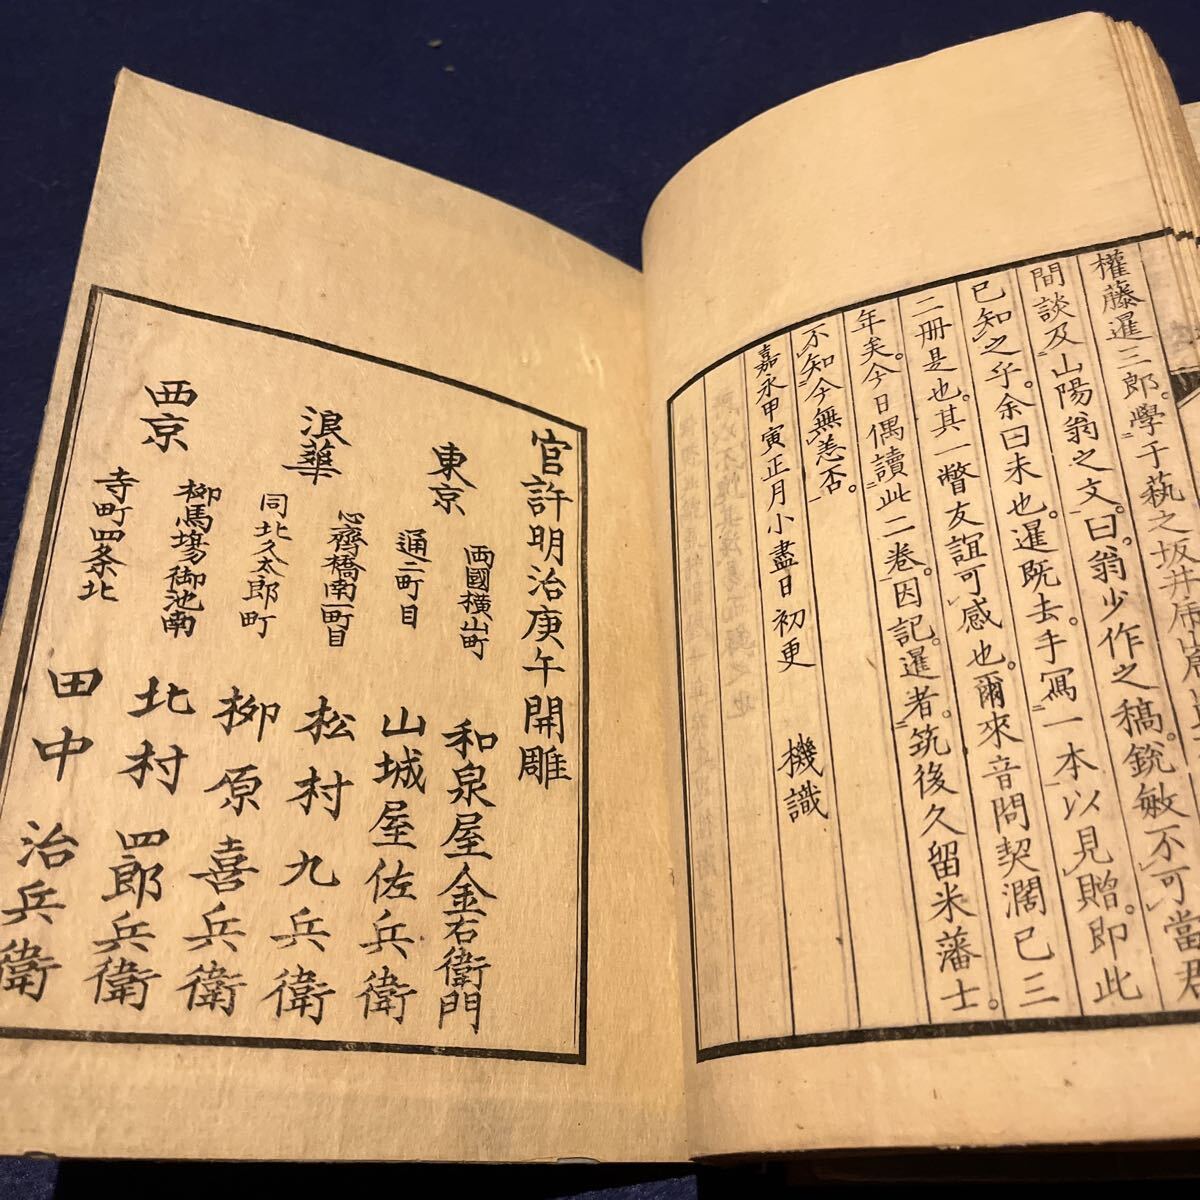 權藤暹三郎。學于藝之坂井
間談及山陽翁之文。曰。翁少作之稿。銃敏不可當。君
已知之乎。余曰未也。暹既去。手寫一本以見贈。即此
二册是也。其一瞥友誼可感也。爾來音問契濶已三
年矣。今日偶讀此二卷。因記。暹者。筑後久留米藩士。
不知今無恙否。
嘉永甲寅正月小盡日初更　機識
官許明治庚午開雕
東京
兩國横山町　和泉屋金右衛門
通二町目　山城屋佐兵衛
浪華
心齋橋南一町目　松村九兵衛
同北久太郎町　柳原喜兵衛
西京
柳馬場御池南　北村四郎兵衛
寺町四条北　田中治兵衛